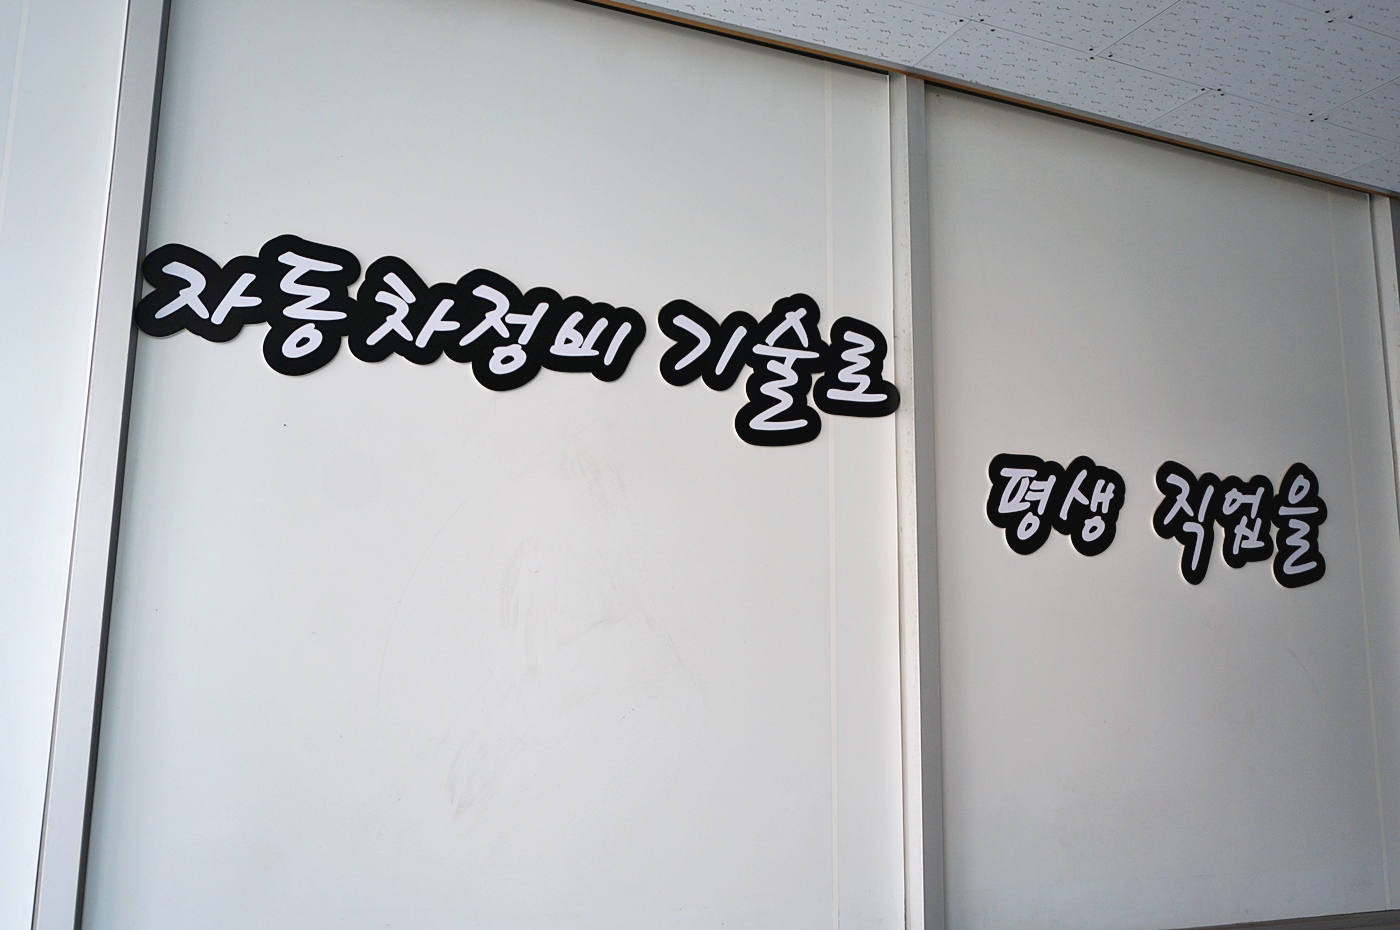 자동차정비 기술로
평생 직업을